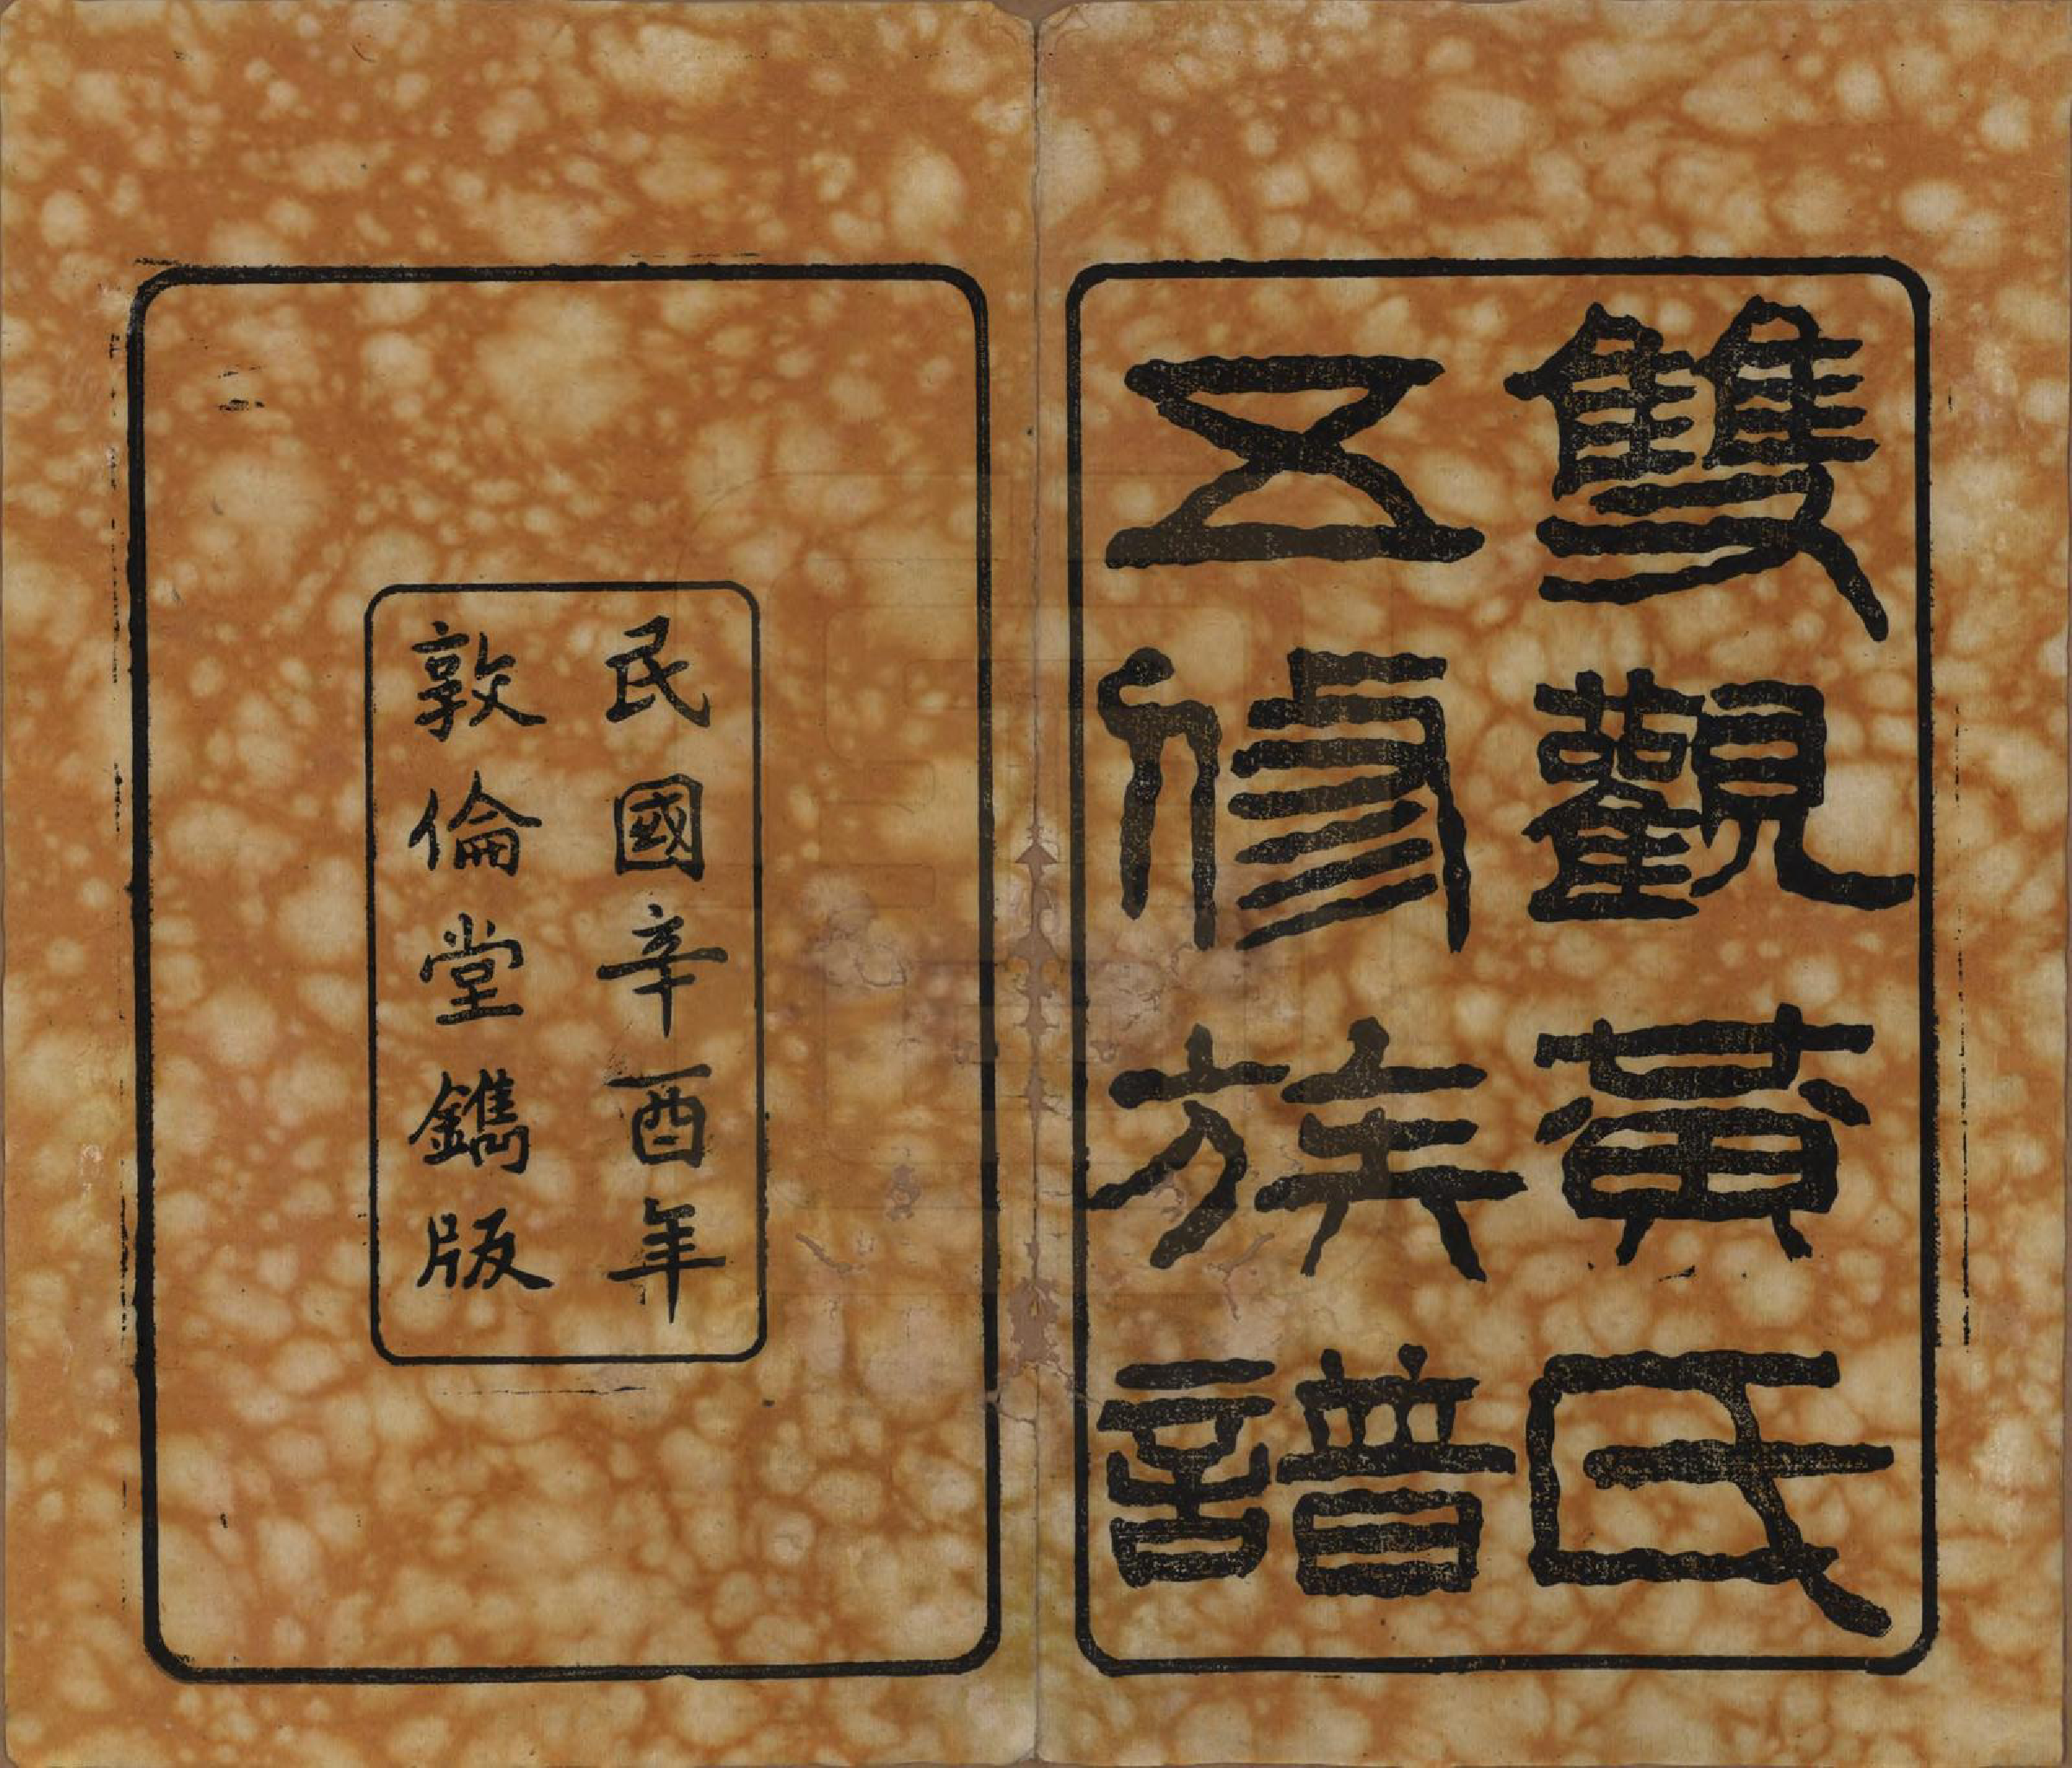 雙觀黃氏
五修族譜
民國辛酉年
敦倫堂鐫版